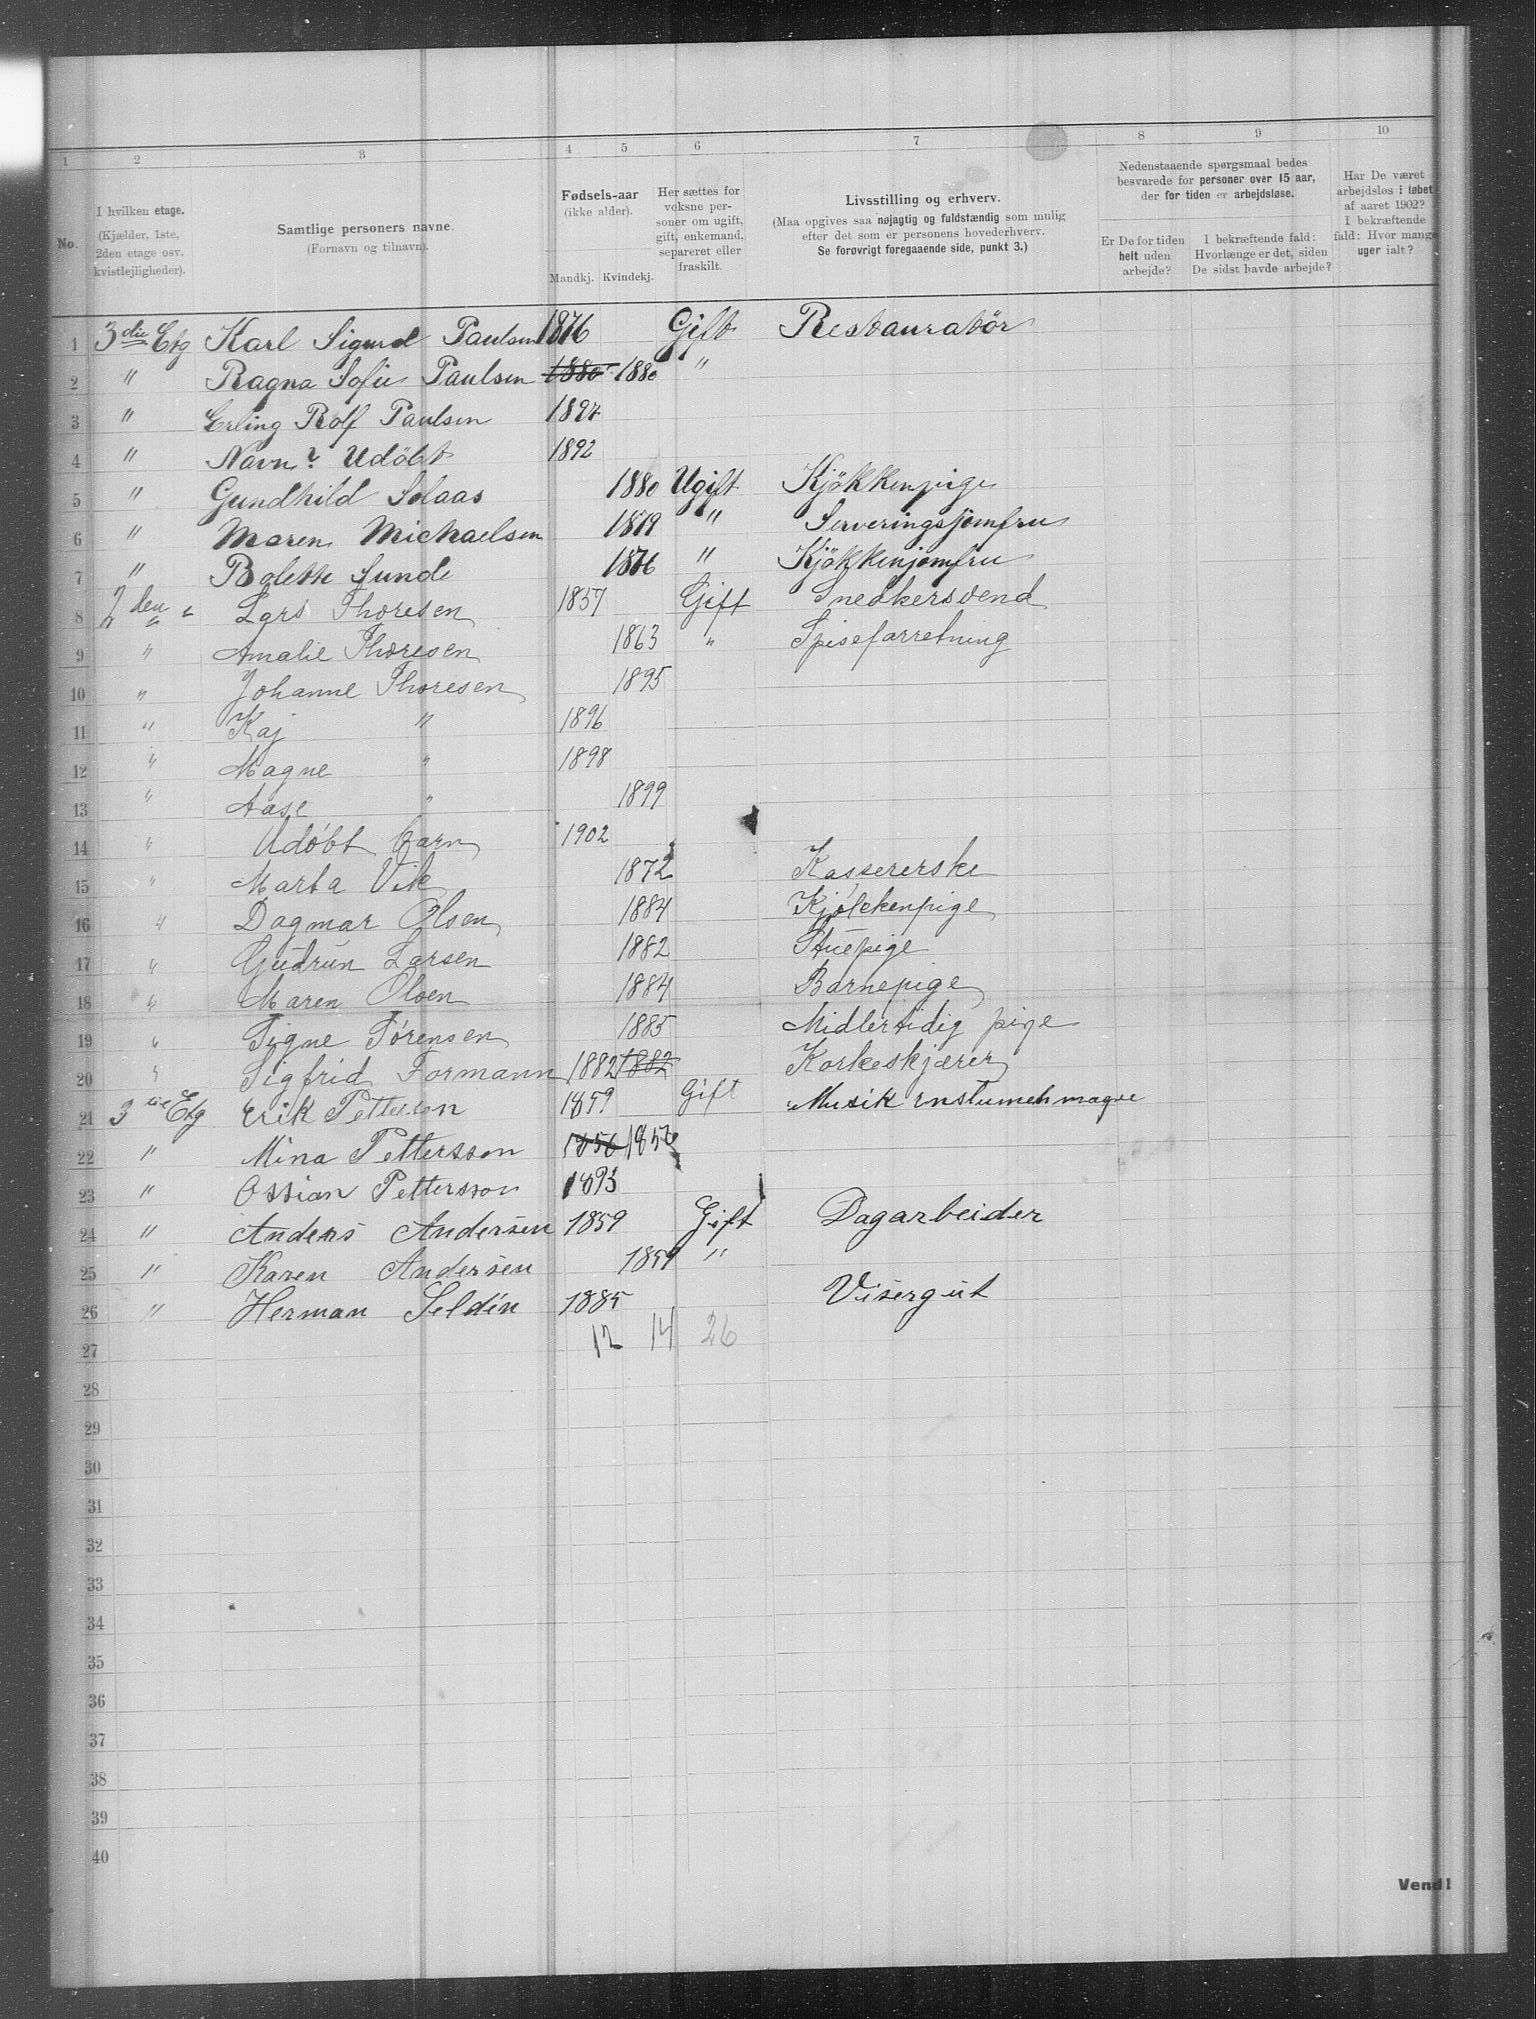 1 2 3 4 5 6 7 8 9 10
No.
I hvilken etage.
(Kjælder, 1ste, 2den etage osv. kvistlejligheder).
Samtlige personers navne.
(Fornavn og tilnavn).
Fødsels-aar
(ikke alder).
Mandkj. Kvindekj.
Her sættes for voksne personer om ugift, gift, enkemand, separeret eller fraskilt.
Livsstilling og erhverv.
(Maa opgives saa nøjagtig og fuldstændig som mulig efter det som er personens hovederhverv.
Se forøvrigt foregaaende side, punkt 3.)
Nedenstaaende spørgsmaal bedes besvarede for personer over 15 aar, der for tiden er arbejdsløse.
Er De for tiden helt uden arbejde?
I bekræftende fald: Hvorlænge er det, siden De sidst havde arbejde?
Har De været arbejdsløs i løbet af aaret 1902? I bekræftende fald: Hvor mange uger ialt?
1 3die Etg Karl Sigurd Paulsen 1876 Gift Restauratör
2 " Ragna Sofie Paulsen 1880 1880 "
3 " Erling Rolf Paulsen 1897
4 " Navn? Udöbt 1892
5 " Gundhild Solaas 1880 Ugift Kjökkenpige
6 " Maren Michaelsen 1879 " Serveringsjomfru
7 " Bolette Sunde 1876 " Kjökkenjomfru
8 2den " Lars Thoresen 1857 Gift Snedkersvend
9 " Amalie Thoresen 1863 " Spiseforretning
10 " Johanne Thoresen 1895
11 " Kaj " 1896
12 " Magne " 1898
13 " Aase " 1899
14 " Udøbt barn 1902
15 " Marta Vik 1872 Kassererske
16 " Dagmar Olsen 1884 Kjøkkenpige
17 " Gudrun Larsen 1882 Stuepige
18 " Maren Olsen 1884 Barnepige
19 " Signe Sørensen 1885 Midlertidig pige
20 " Sigfrid Formann 1882 1882 Korkeskjærer
21 3die Etg Erik Pettersson 1859 Gift Musik instumen magre
22 " Mina Pettersson 1856 1856
23 " Ossian Pettersson 1893
24 " Anders Andersen 1859 Gift Dagarbeider
25 " Karen Andersen 1859 "
26 " Herman Seldin 1885 Visergut
27 12 14 26
28
29
30
31
32
33
34
35
36
37
38
39
40
Vend!